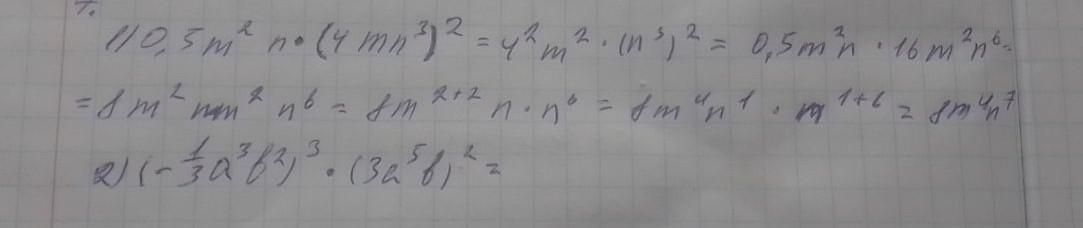 1) 0,5m² n · (4mn³)² = 4²m² · (n³)² = 0,5m²n · 16m²n⁶ =
= 8m² nm² n⁶ = 8m²⁺² n · n⁶ = 8m⁴n¹ · n¹⁺⁶ = 8m⁴n⁷
2) (-1/3a³b²)³ · (3a⁵b)² =